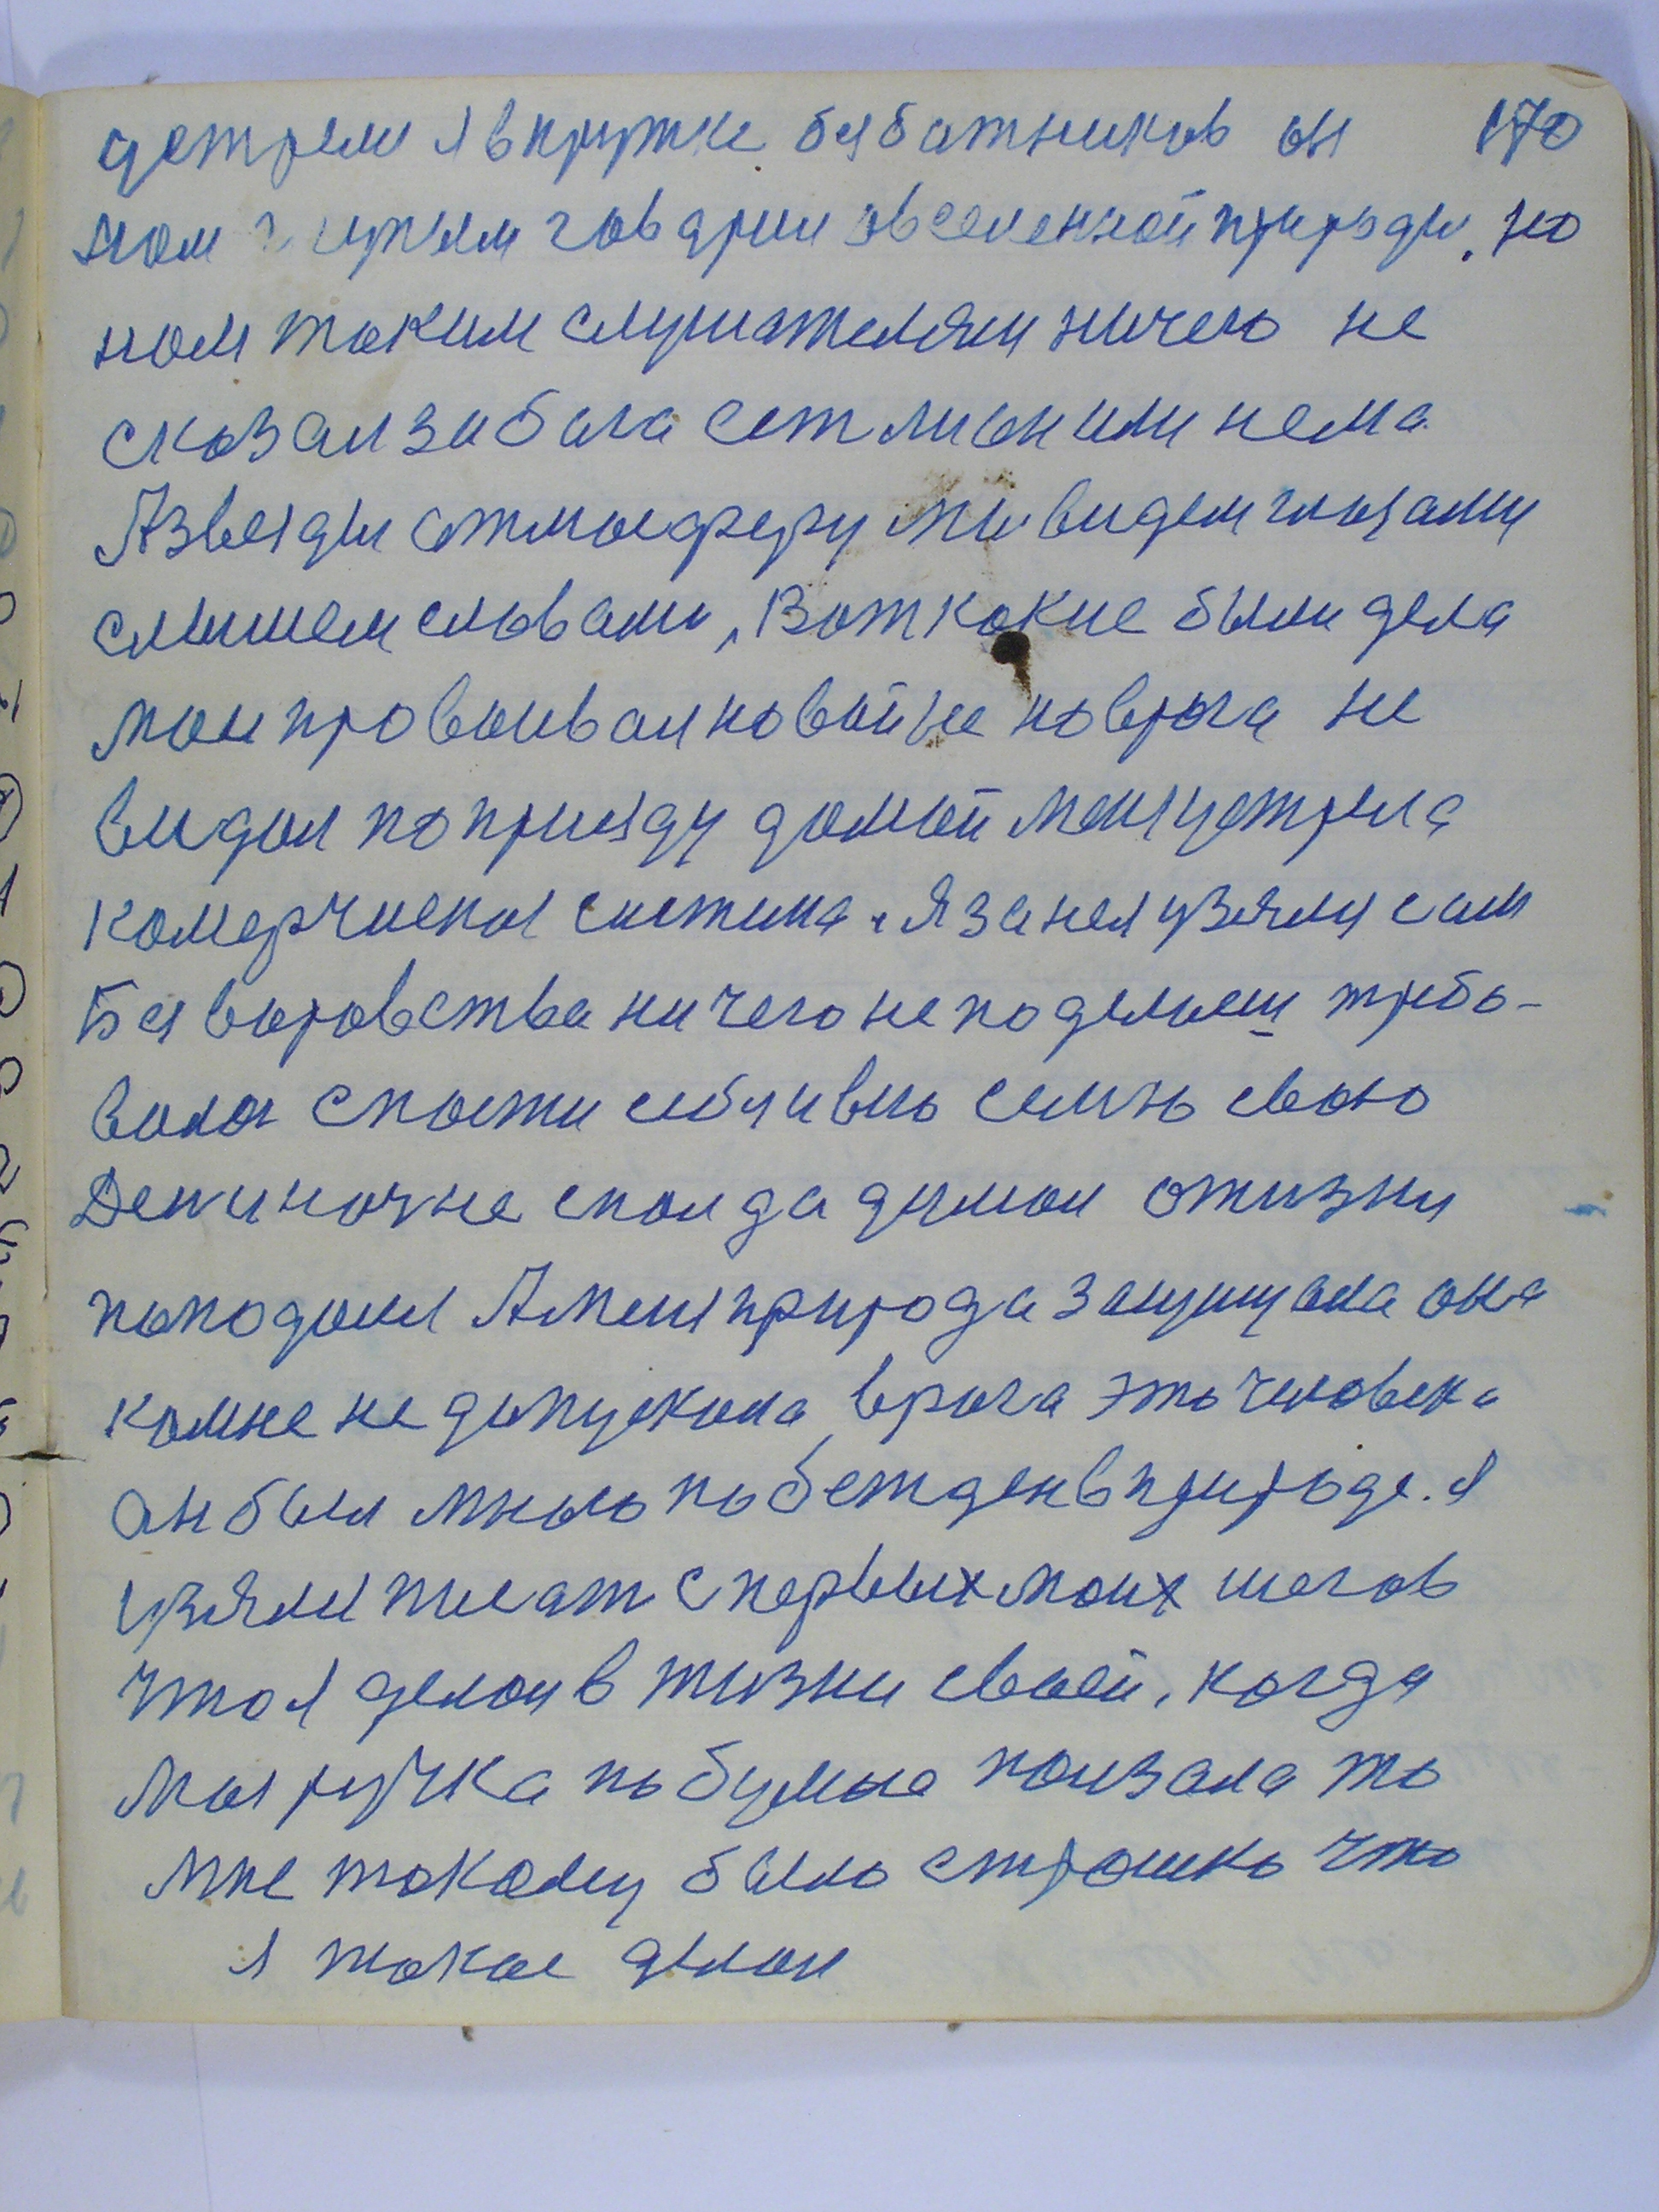 устрели я в кружке безбатников он 170
нам говарил овселенной природы. но
ном таким слушателям ничего не
сказал за бога ест ли он или нема
А звезды атмасферу мы видем глазами
слышем словами, Вот какие были дела
мои провоивал новойне новрага не
видал но прыизду домой меня устрела
комерчиская систима. Я за нея узялся сам
Без воровства ничего не поделаеш требо-
волос спасти себя и всю семью свою
Ден и ноч не спал да думал ожизни
нападали А меня природа защищала она
комне не допускала врага это человека
он был мною побежден в природе. я
узялся писат с первых моих шегов
что я делал в жизни своей, когда
Моя ручка по бумаге ползала то
мне такому было страшно что
я такое делал